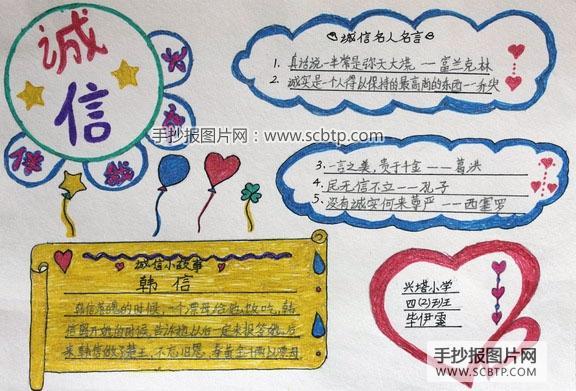 诚
信
诚信名人名言
1. 真话说一半常是弥天大谎——富兰克林
2. 诚实是一个人得以保持的最高尚的东西——乔叟
手抄报图片网:www.scbtp.com
3. 一言之美,贵于千金——葛洪
4. 民无信不立——孔子
5. 没有诚实何来尊严——西塞罗
诚信小故事
韩信
韩信的时候,一个漂母给他饭吃,韩
信离开她的时候,告诉她以后一定来报答她,后
来韩信做了楚王,不忘旧恩,奉黄金千两以漂母
兴塔小学
四(2)班
毕伊雯
手抄报图片网
WWW.SCBTP.COM